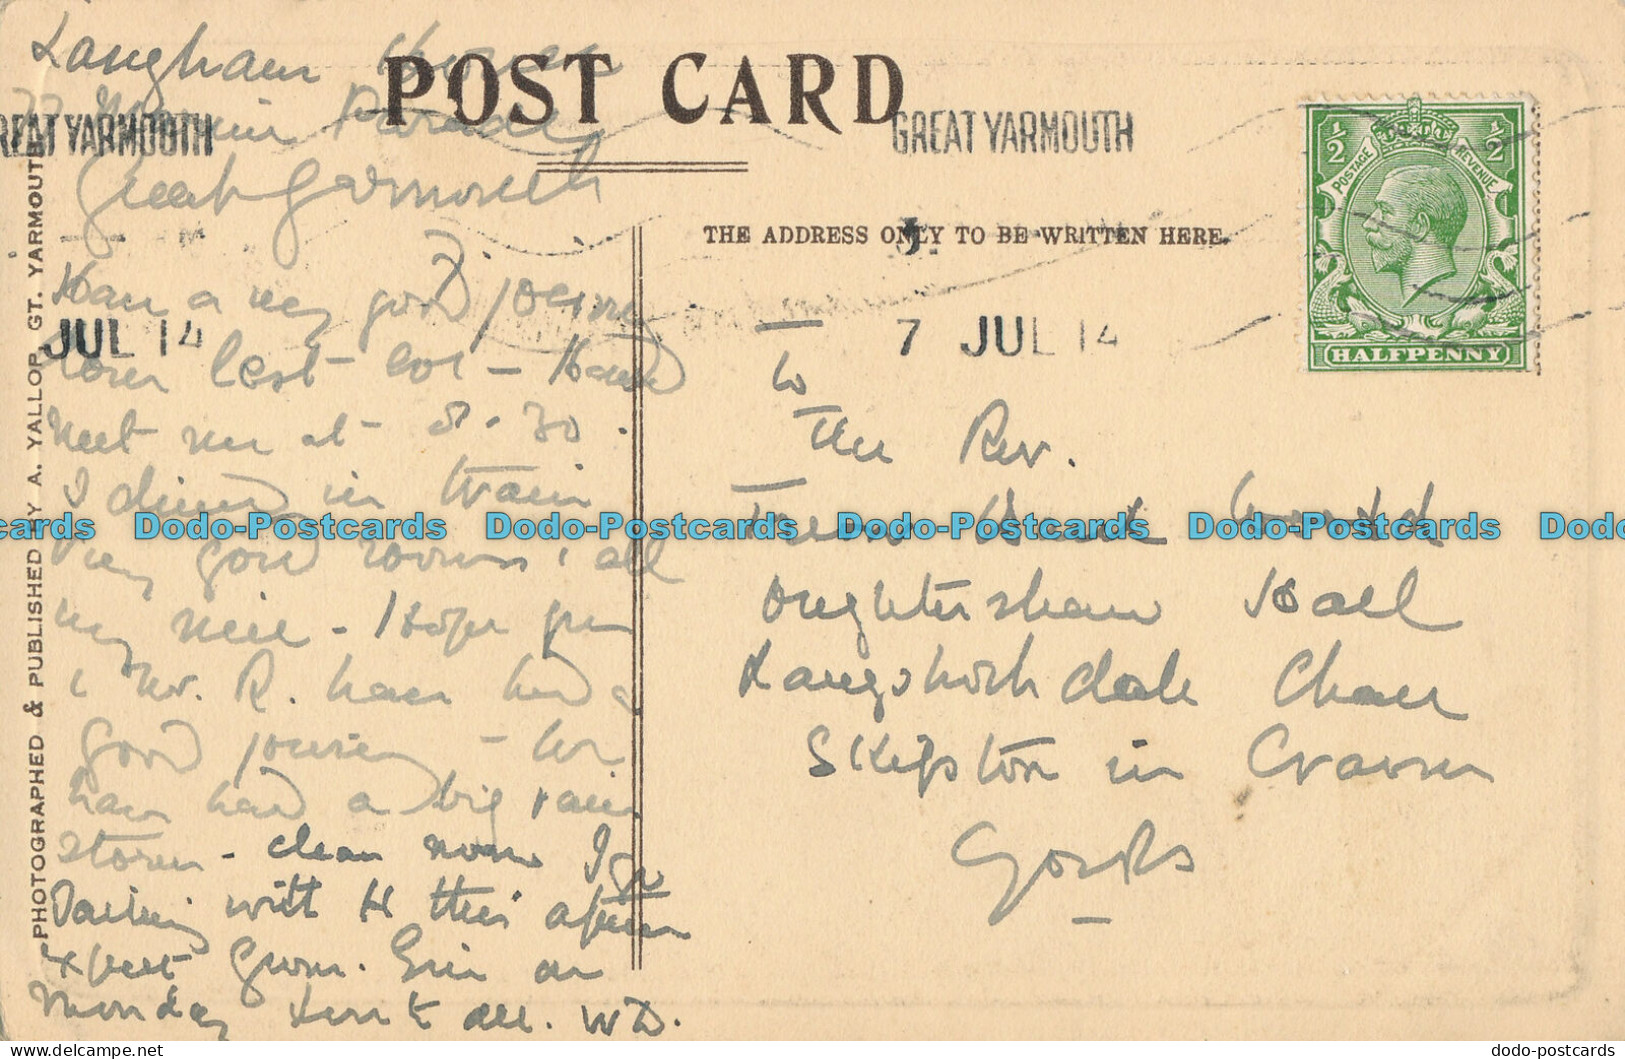 Langham House
Parade
Great Yarmouth
POST CARD
GREAT YARMOUTH
GREAT YARMOUTH
½ ½
POSTAGE REVENUE
HALFPENNY
THE ADDRESS ONLY TO BE WRITTEN HERE.
JUL 14
7 JUL 14
Had a very good journey
down last eve -
meet me at 8.30.
I dined in train
Very good rooms & all
very nice - Hope you
& Mr. R. have had a
good journey - We
have had a big rain
storm - clean now I go
with H this after
expect Gwen. on
Monday all. W D.
To
The Rev.
Oughtershaw Hall
Langstrothdale Chase
Skipton in Craven
Yorks
PHOTOGRAPHED & PUBLISHED BY A. YALLOP, GT. YARMOUTH
cards Dodo-Postcards Dodo-Postcards Dodo-Postcards Dodo-Postcards Dodo
dodo-postcards